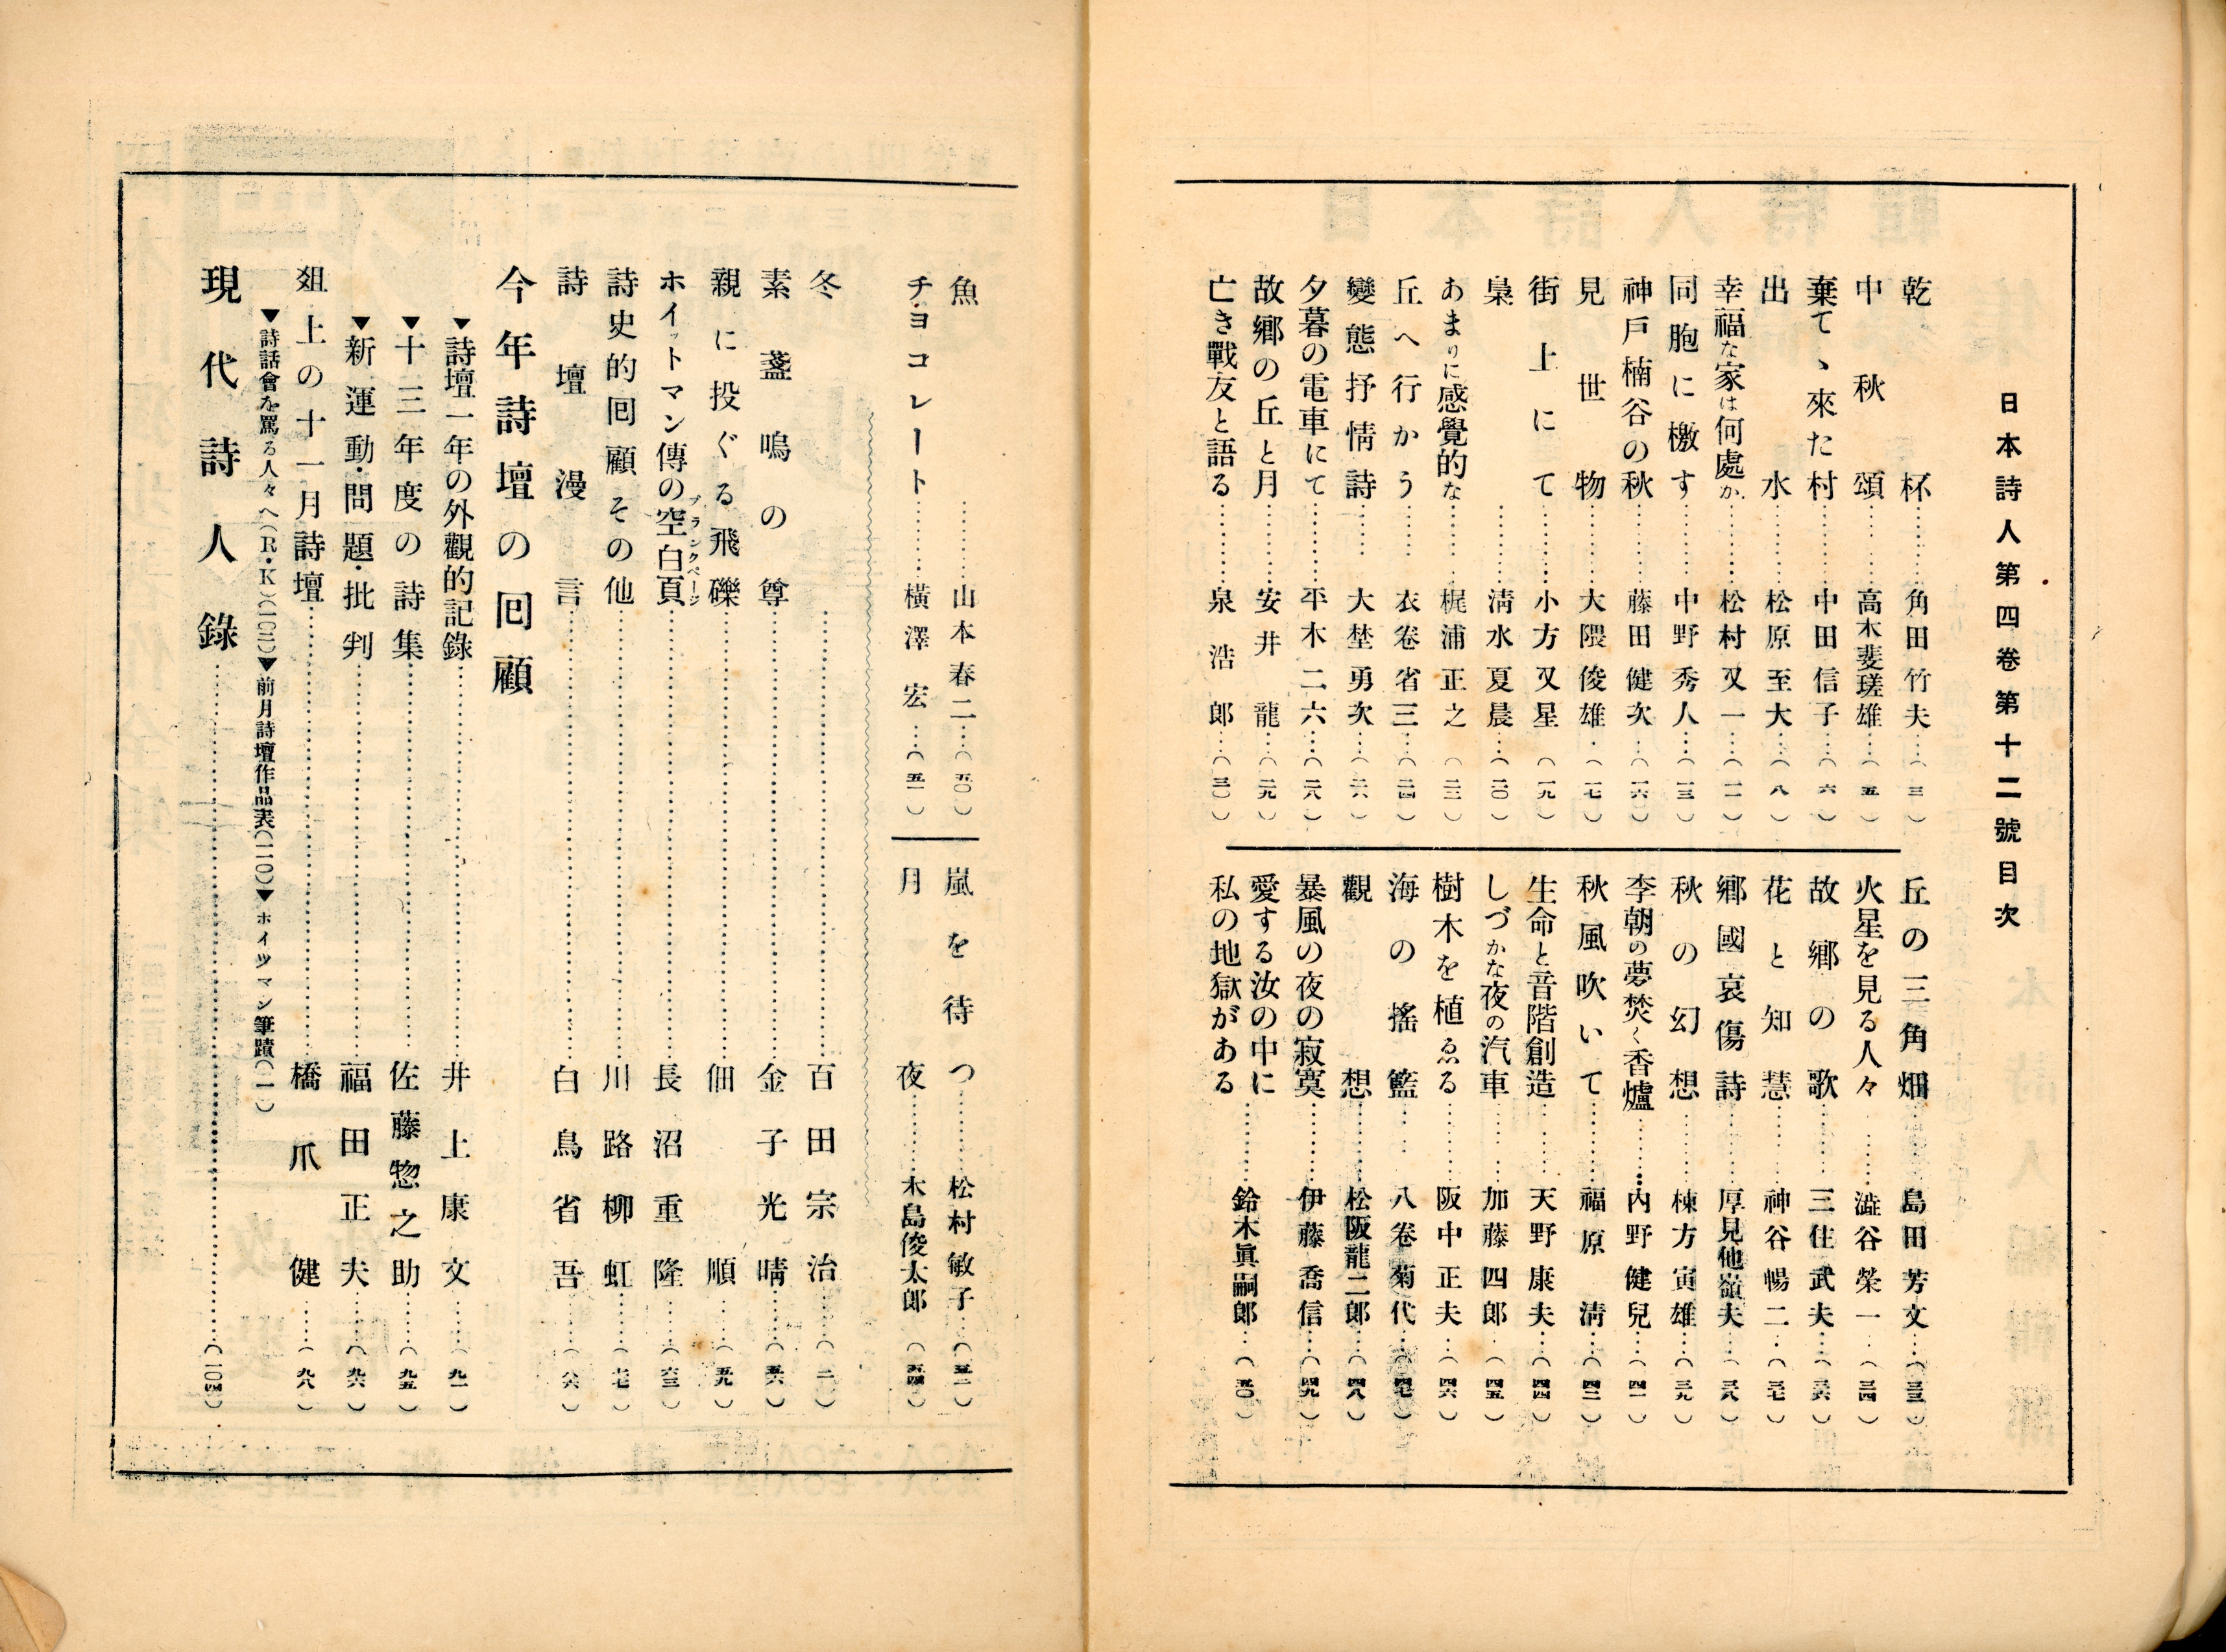 日本詩人第四卷第十二號目次
乾杯………角田竹夫…（三）
中秋頌………高木斐瑳雄（五）
棄てゝ來た村………中田信子…（六）
出水………松原至大…（八）
幸福な家は何處か………松村又一…（一一）
同胞に檄す………中野秀人…（一三）
神戸楠谷の秋………藤田健次…（一六）
見世物………大隈俊雄…（一七）
街上にて………小方又星（一九）
梟………清水夏晨…（二〇）
あまりに感覺的な………梶浦正之（二三）
丘へ行かう………衣卷省三…（二四）
變態抒情詩………大埜勇次…（二六）
夕暮の電車にて………平木二六…（二八）
故郷の丘と月………安井龍…（二九）
亡き戰友と語る………泉浩郎…（三〇）
丘の三角畑………島田芳文…（三三）
火星を見る人々………澁谷榮一…（三四）
故郷の歌………三住武夫…（三六）
花と知慧………神谷暢二…（三七）
郷國哀傷詩………厚見他嶺夫…（三八）
秋の幻想………棟方寅雄…（三九）
李朝の夢焚く香爐………内野健兒…（四一）
秋風吹いて………福原清…（四三）
生命と音階創造………天野康夫…（四四）
しづかな夜の汽車………加藤四郎…（四五）
樹木を植ゑる………阪中正夫…（四六）
海の搖籃………八卷菊代…（四七）
觀想………松阪龍二郎…（四八）
暴風の夜の寂寞………伊藤喬信…（四九）
愛する汝の中に
私の地獄がある………鈴木眞嗣郎…（五〇）
魚………山本春二…（五〇）
チョコレート………横澤宏…（五一）
嵐を待つ………松村敏子…（五二）
月夜………木島俊太郎（五四）
冬………百田宗治…（二）
素盞嗚の尊………金子光晴…（五六）
親に投ぐる飛礫………佃順…（五九）
ホイットマン傳の空白頁ブランクページ………長沼重隆…（六三）
詩史的囘顧その他………川路柳虹…（七七）
詩壇漫言………白鳥省吾…（八六）
今年詩壇の囘顧
▼詩壇一年の外觀的記錄………井上康文…（九一）
▼十三年度の詩集………佐藤惣之助…（九五）
▼新運動・問題・批判………福田正夫…（九六）
爼上の十一月詩壇………橋爪健…（九八）
▼詩話會を罵る人々へ（R・K）（一〇三）▼前月詩壇作品表（一一〇）▼ホイツマン筆蹟（一）
現代詩人錄………（一〇四）